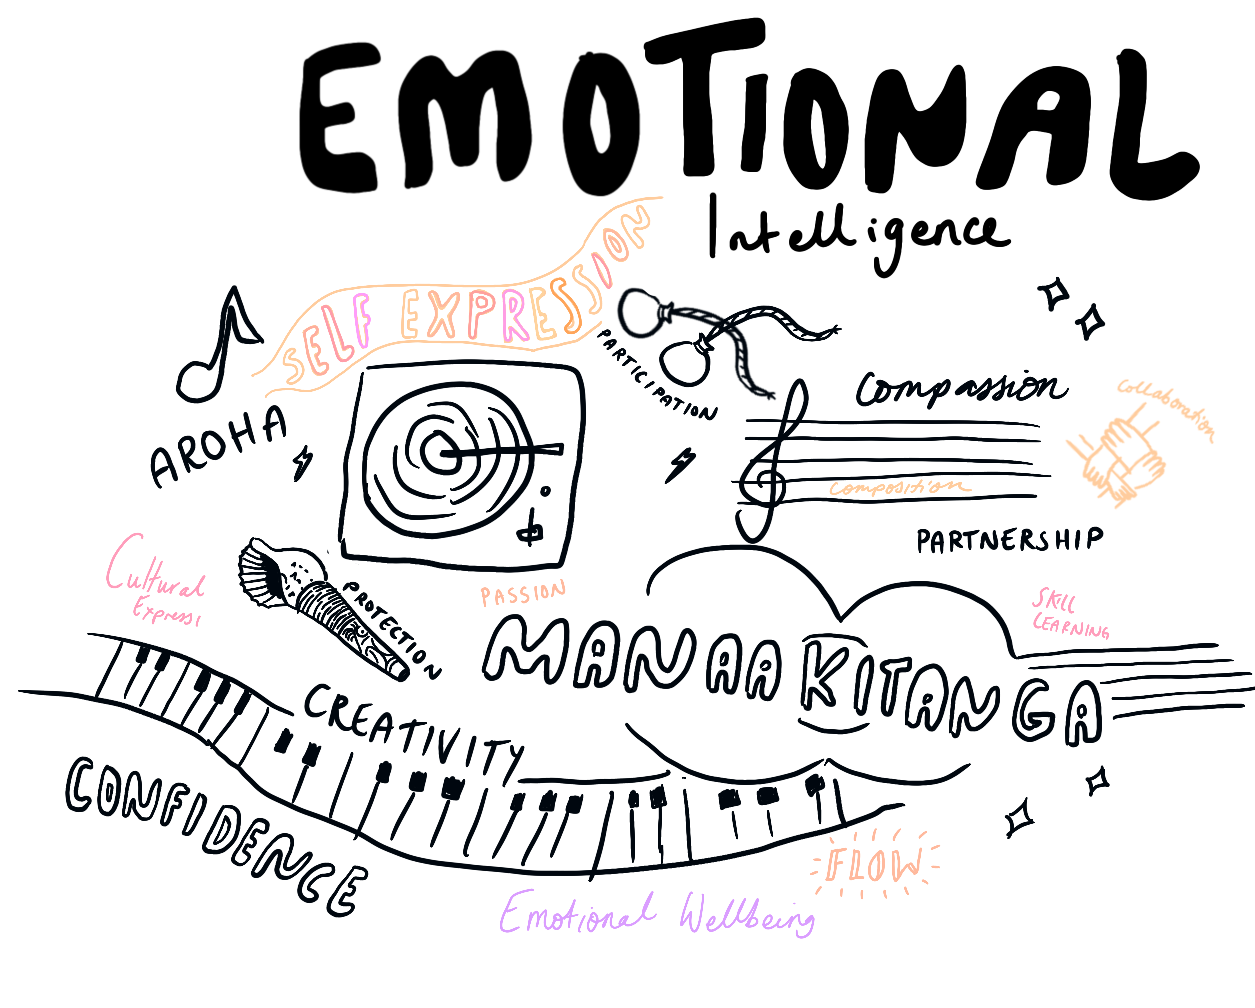 EMOTIONAL
Intelligence
SELF EXPRESSION
PARTICIPATION
AROHA
Compassion
Collaboration
Composition
PARTNERSHIP
Cultural
EXPRESSI
PROTECTION
PASSION
SKILL
LEARNING
MANAAKITANGA
CREATIVITY
CONFIDENCE
FLOW
Emotional Wellbeing